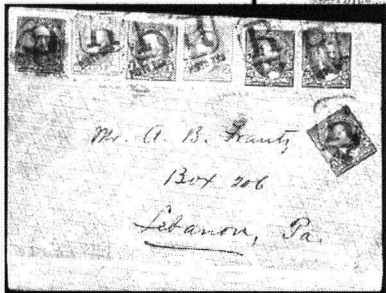 Mr. A. B. Frantz
Box 206
Lebanon, Pa.